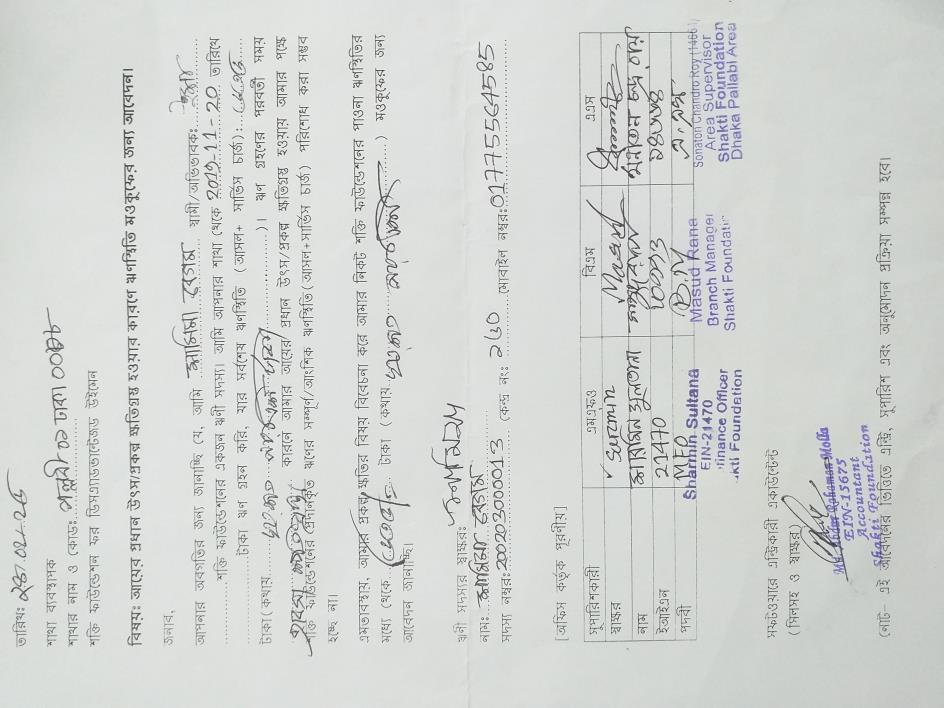 তারিখ:
শাখা ব্যবস্থাপক
শাখার নাম ও কোড: পল্লবী ০১ ঢাকা
শক্তি ফাউন্ডেশন ফর ডিসএ্যাডভান্টেজড উইমেন
বিষয়: আয়ের প্রধান উৎস/প্রকল্প ক্ষতিগ্রস্ত হওয়ার কারণে ঋণস্থিতি মওকুফের জন্য আবেদন।
জনাব,
আপনার অবগতির জন্য জানাচ্ছি যে, আমি বেগম স্বামী/অভিভাবক:
শক্তি ফাউন্ডেশনের একজন ঋণী সদস্য। আমি আপনার শাখা থেকে 2019-11-20 তারিখে
টাকা ঋণ গ্রহন করি, যার সর্বশেষ ঋণস্থিতি (আসল+ সার্ভিস চার্জ):
টাকা(কথায়) । ঋণ গ্রহনের পরবর্তী সময়
কারনে আমার আয়ের/প্রধান উৎস/প্রকল্প ক্ষতিগ্রস্ত হওয়ায় আমার পক্ষে
শক্তি ফাউন্ডেশনের প্রদানকৃত ঋণের সম্পূর্ণ/আংশিক ঋণস্থিতি(আসল+সার্ভিস চার্জ) পরিশোধ করা সম্ভব
হচ্ছে না।
এমতাবস্থায়, আমার প্রকল্প ক্ষতির বিষয় বিবেচনা করে আমার নিকট শক্তি ফাউন্ডেশনের পাওনা ঋণস্থিতির
মধ্যে থেকে টাকা (কথায়) মওকুফের জন্য
আবেদন জানাচ্ছি।
ঋণী সদস্যর স্বাক্ষর:
নাম: বেগম
সদস্য নম্বর: 20020300000013 (কেন্দ্র নং: মোবাইল নম্বর: 01775564585
[অফিস কর্তৃক পূরণীয়]
সুপারিশকারী এমএফও বিএম এএস
স্বাক্ষর Masud
নাম শারমিন সুলতানা মাসুদ রানা সনাতন চন্দ্র রায়
ইআইএন 21470
পদবী MFO B.M এ.এস
Sharmin Sultana
EIN-21470
finance Officer
kti Foundation
Masud Rana
Branch Manager
Shakti Foundation
Sonaton Chandro Roy
Area Supervisor
Shakti Foundation
Dhaka Pallabi Area
সফটওয়ারে এন্ট্রিকারী একাউন্টেন্ট
(সিলসহ ও স্বাক্ষর)
Rahaman Molla
EIN-15675
Accountant
Shakti Foundation
(নোট- এই আবেদনের ভিত্তিতে এন্ট্রি, সুপারিশ এবং অনুমোদন প্রক্রিয়া সম্পন্ন হবে।